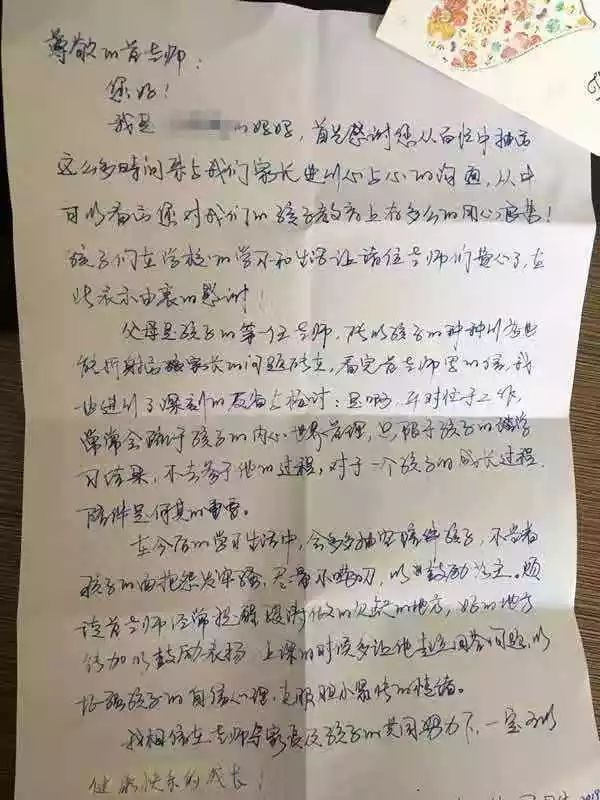 尊敬的肖老师：
您好！
我是 的妈妈，首先感谢您从百忙中抽出
这么多时间来与我们家长进行心与心的沟通，从中
可以看出您对我们的孩子教育上有多么的用心良苦！
孩子们在学校的学习和生活让诸位老师们费心了，在
此表示由衷的感谢！
父母是孩子的第一任老师，所以孩子的种种行为也
能折射出家长的问题所在，看完肖老师写的信，我
也进行了深刻的反省与检讨：是啊，平时忙于工作，
常常会疏于孩子的内心世界管理，只限于孩子的
习结果，不去参于他的过程，对于一个孩子的成长过程
陪伴是何其的重要。
在今后的学习生活中，会多多抽空陪伴孩子，不当着
孩子的面抱怨发牢骚，尽量不唠叨，以鼓励为主。烦
请肖老师经常提醒 做的欠缺的地方，好的地方
给加以鼓励表扬，上课的时候多让他起立回答问题，以
增强孩子的自信心理，克服胆小 的情绪。
我相信在老师与家长及孩子的共同努力下，一定可以
健康快乐的成长！